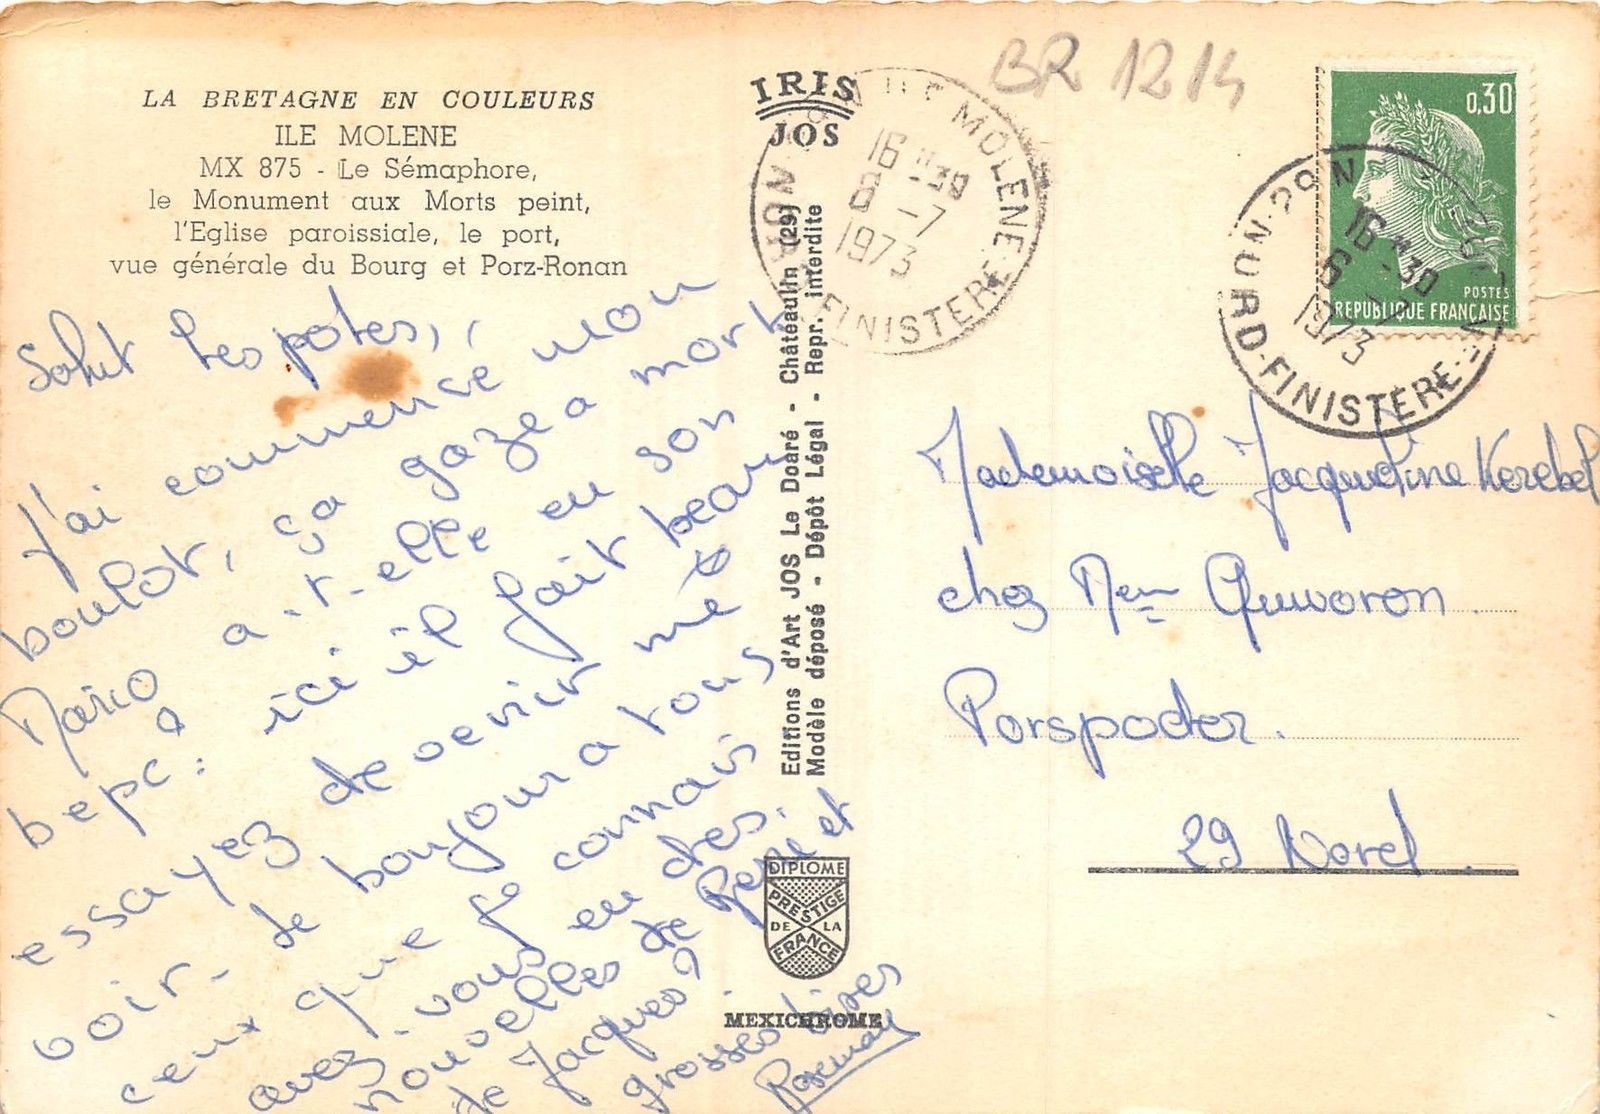 LA BRETAGNE EN COULEURS
ILE MOLENE
MX 875 - Le Sémaphore,
le Monument aux Morts peint,
l'Eglise paroissiale, le port,
vue générale du Bourg et Porz-Ronan
Salut les potes,
J'ai commencé mon
boulot, ça gaze a mort
Marico a-t-elle eu son
bepc? ici il fait beau
essayez de venir me
voir. le bonjour a tous
ceux que je connais
avez-vous eu des
nouvelles de René et
de Jacques?
grosses bises
Rosemary
IRIS
JOS
Editions d'Art JOS Le Doaré - Châteaulin (29)
Modèle déposé - Dépôt Légal - Repr. interdite
DIPLOME
PRESTIGE
DE LA
FRANCE
MEXICHROME
BR 1214
ILE MOLENE
16 H 30
-7
1973
FINISTERE
0,30
POSTES
REPUBLIQUE FRANÇAISE
29 N
16 H 30
1973
NORD-FINISTERE
Mademoiselle Jacqueline Kerebel
chez Mem Quivoron
Porspoder.
29 Nord.